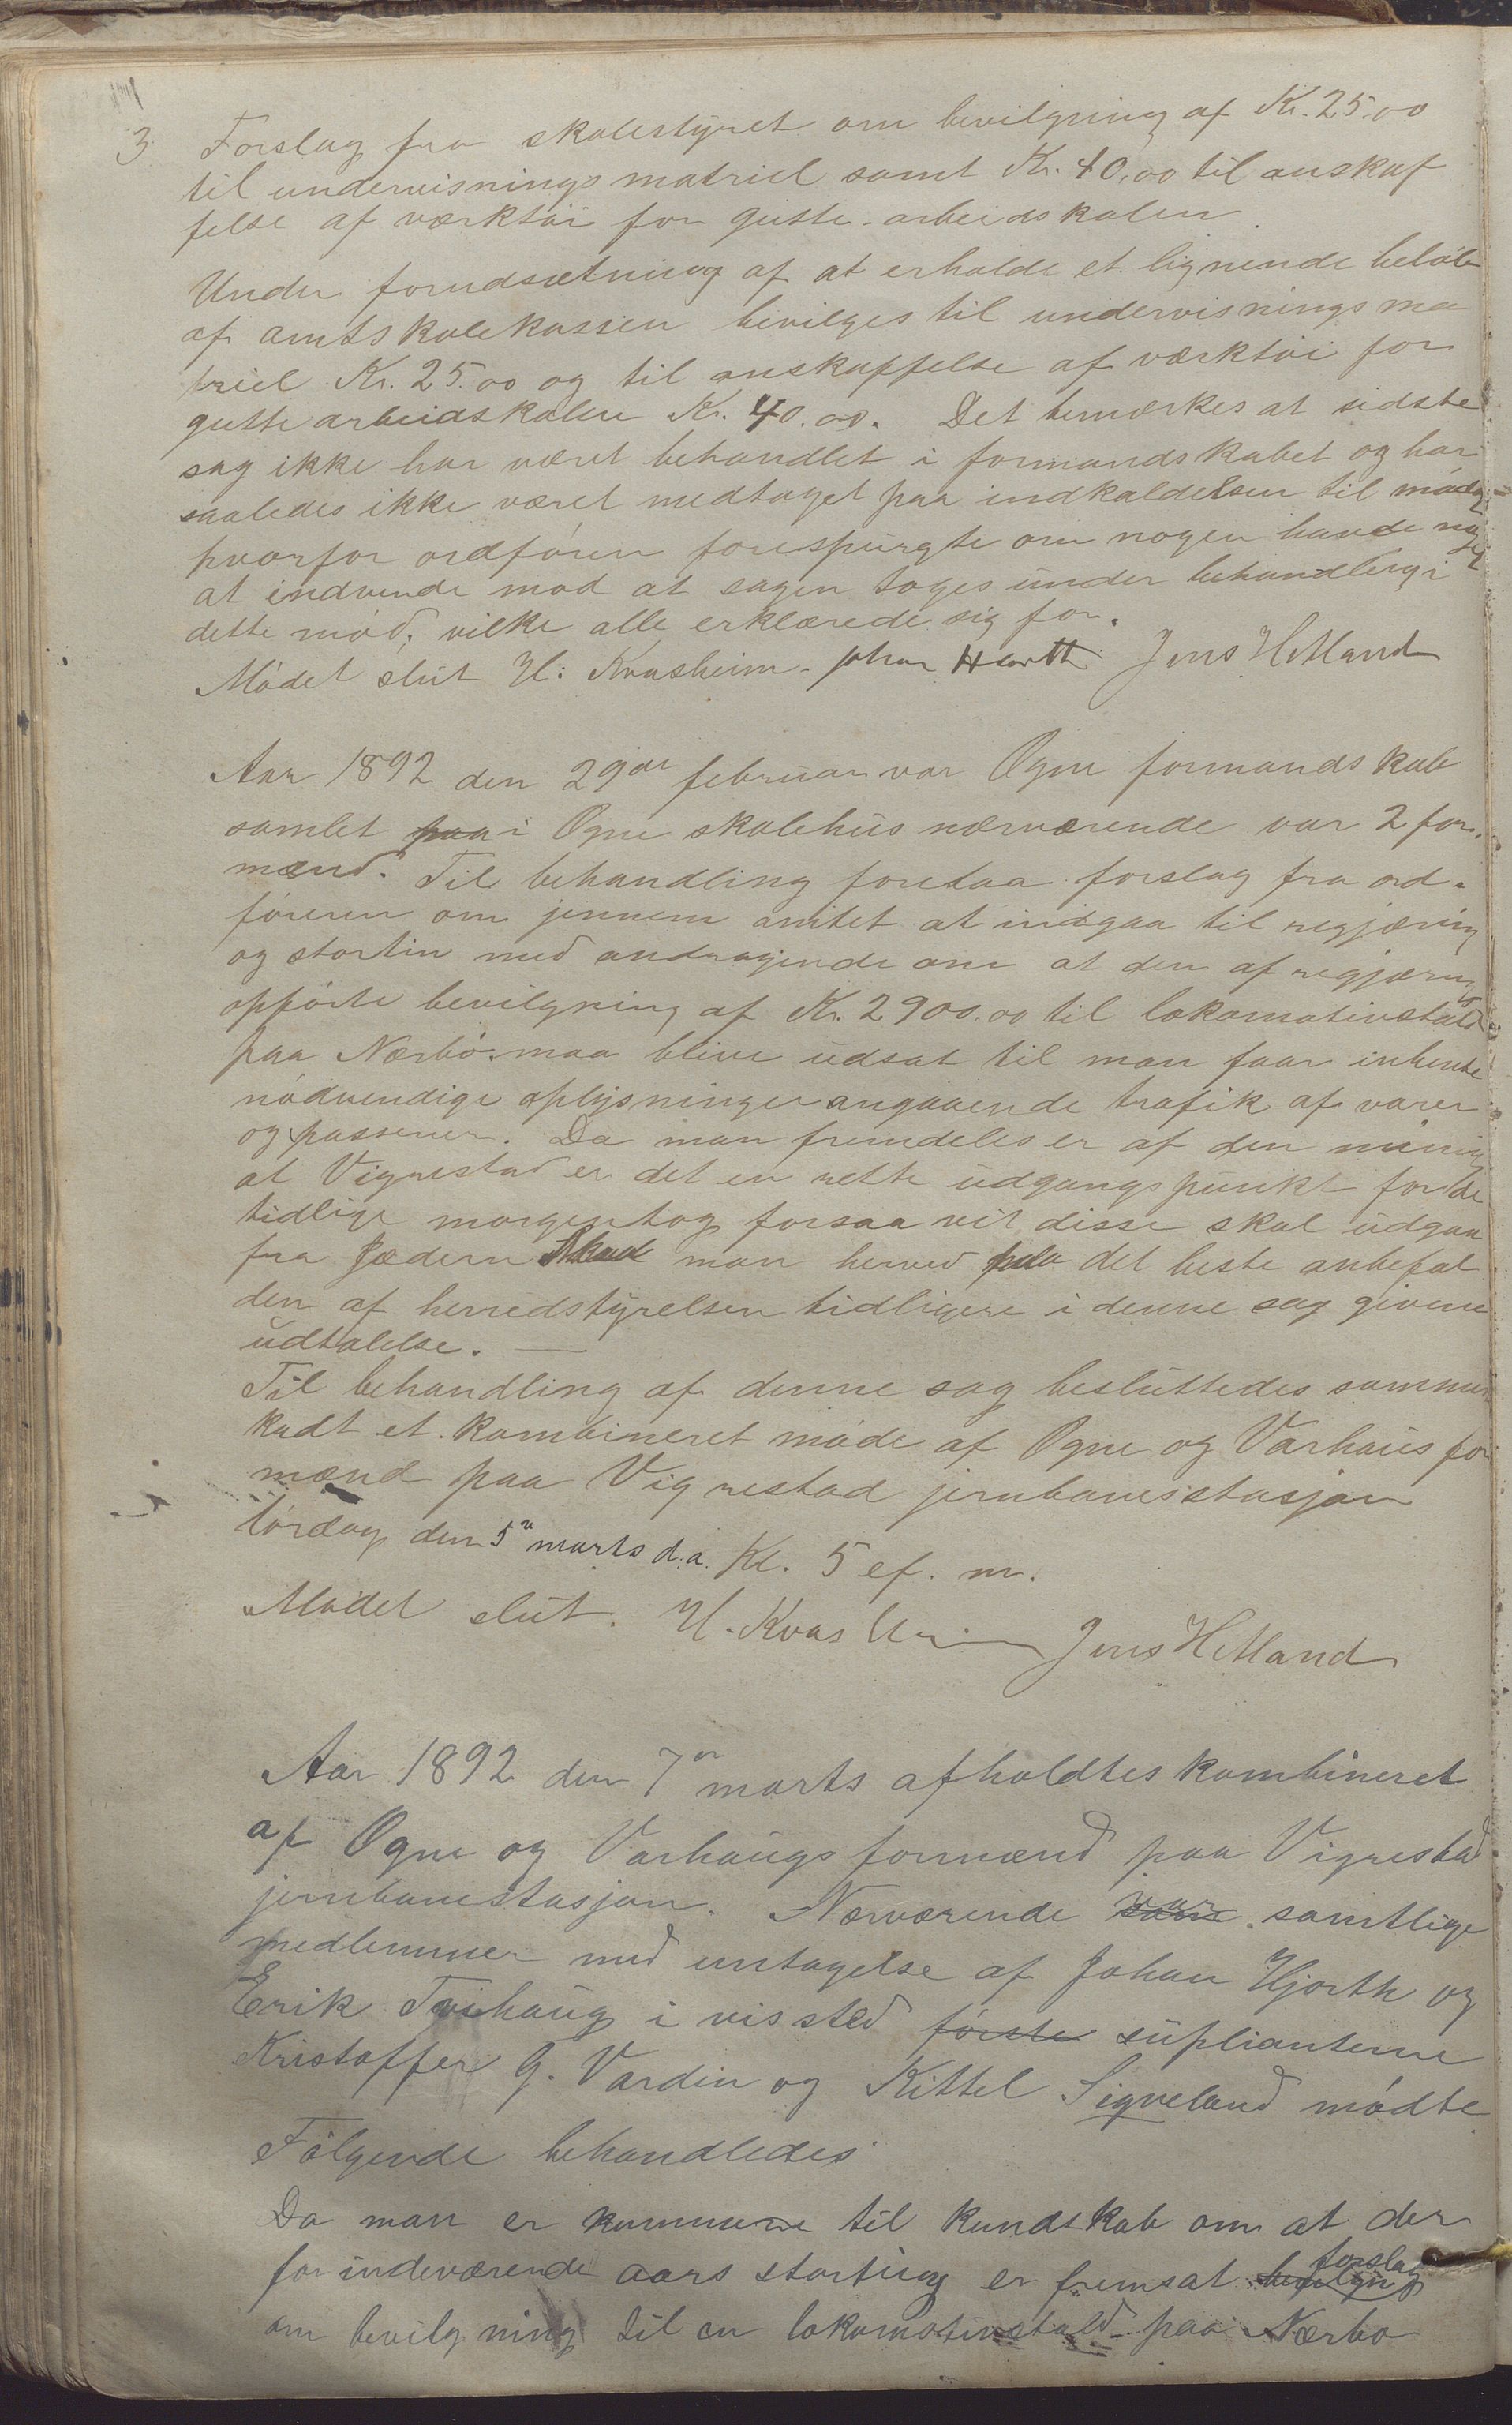 3 Forslag fra skolestyret om bevilgning af Kr. 25.00
til undervisningsmatriel samt Kr. 40,00 til anskaf
felse af værktøi for gutte-arbeidskolen
Under forudsætning af at erholde et lignende beløb
af amtskolekassen bevilges til undervisningsma
triel Kr. 25.00 og til anskaffelse af værktøi for
guttearbeidskolen Kr. 40.00. Det bemærkes at sidste
sag ikke har været behandlet i formandskabet og har
saaledes ikke været medtaget paa indkaldelsen til møde
hvorfor ordføren forespurgte om nogen havde noget
at indvende mod at sagen toges under behandling i
dette mød, vilke alle erklærede sig for.
Mødet slut H: Kvasheim. Johan Hjorth Jens Hetland
Aar 1892 den 29de februar var Ogne formandskab
samlet paa i Ogne skolehus nærværende var 2 for.
mænd. Til behandling foretaa forslag fra ord-
føreren om jennem amtet at indgaa til regjæring
og stortin med andragende om at den af regjæring
opførte bevilgning af Kr. 2900.00 til lokomotivstald
paa Nærbø maa blive udsat til man faar inhente
nødvendige oplysninger angaaende trafik af varer
og passerer. Da man fremdeles er af den mining
at Vigrestad er det en rette udgangspunkt for de
tidlige morgentog forsaa vit disse skal udgaa
fra Jædern skal man herved paa det beste anbefal
den af herredstyrelsen tidligere i denne sag givene
udtalelse. —
Til behandling af denne sag besluttedes sammen
kadt et kombineret møde af Ogne og Varhaus for
mænd paa Vigrestad jernbanestasjon
lørdag den 5te marts d.a. Kl. 5 ef. m.
Mødet slut. H. Kvasheim Jens Hetland
Aar 1892 den 7de marts afholdtes kombineret
af Ogne og Varhaugs formænd paa Vigrestad
jernbanestasjon. Nærværende var samtlige
medlemmer med untagelse af Johan Hjorth og
Erik Tvihaug i vis sted første suplianterne
Kristoffer G. Vardin og Kittel Sigveland mødte
Følgende behandledes
Da man er kommene til kundskab om at der
for indeværende aars storting er fremsat bevilgning forslag
om bevilgning til en lokomotivstald paa Nærbo